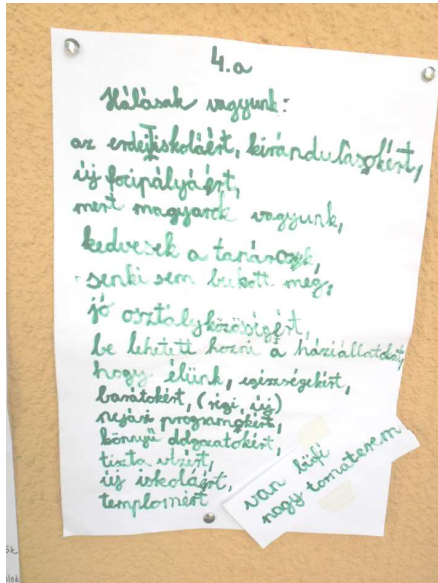 4.a
Hálásak vagyunk:
az erdei iskoláért, kirándulásokért,
új focipályáért,
mert magyarok vagyunk,
kedvesek a tanárok,
senki sem bukott meg,
jó osztályközösségért,
be lehetett hozni a háziállatokat,
hogy élünk, egészségekért,
barátokért, (régi, új)
programokért,
könnyű dolgozatokért,
tiszta vízért,
új iskoláért,
templomért
van büfé
nagy tornaterem